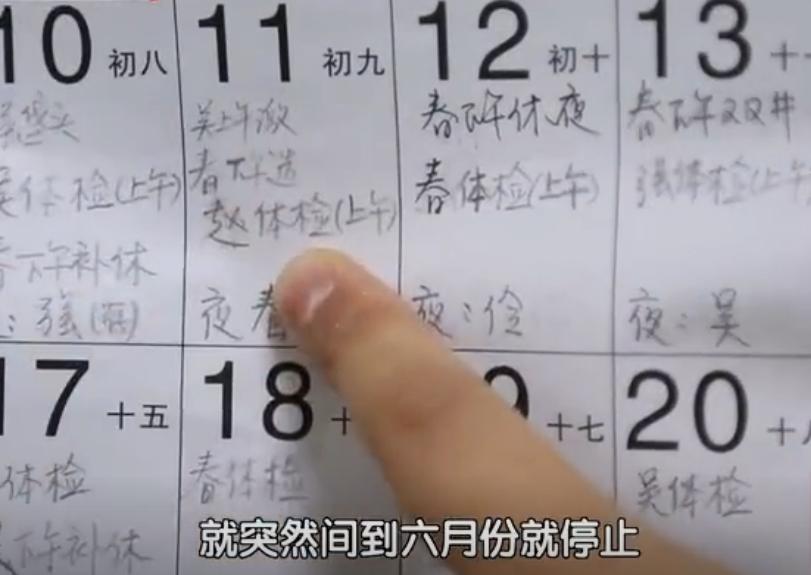 10 初八
体检(上午)
下午补休
: 强
11 初九
吴上午
春下午
赵体检(上午)
夜 春
12 初十
春下午休夜
春体检(上午)
夜:伶
13 十一
春下午双井
强体检(上午
夜:吴
17 十五
体检
下午补休
18 十
春体检
9 十七
20 十八
吴体检
就突然间到六月份就停止